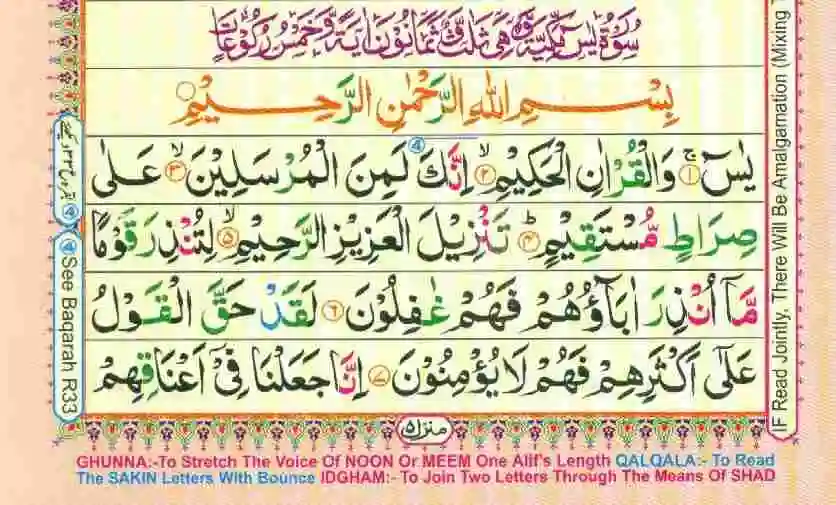 سُوْرَةُ يٰسٓ مَكِّيَّةٌ وَّهِىَ ثَلٰثٌ وَّثَمَانُوْنَ اٰيَةً وَّخَمْسُ رُكُوْعَاتٍ
بِسْمِ اللهِ الرَّحْمٰنِ الرَّحِيْمِ
يٰسٓ ۚ‏﴿۱﴾ وَالْقُرْاٰنِ الْحَكِيْمِ ۙ‏﴿۲﴾ اِنَّكَ لَمِنَ الْمُرْسَلِيْنَ ۙ‏﴿۳﴾ عَلٰى
صِرَاطٍ مُّسْتَقِيْمٍ ؕ‏﴿۴﴾ تَنْزِيْلَ الْعَزِيْزِ الرَّحِيْمِ ۙ‏﴿۵﴾ لِتُنْذِرَ قَوْمًا
مَّاۤ اُنْذِرَ اٰبَآؤُهُمْ فَهُمْ غٰفِلُوْنَ ﴿۶﴾ لَقَدْ حَقَّ الْقَوْلُ
عَلٰٓى اَكْثَرِهِمْ فَهُمْ لَا يُؤْمِنُوْنَ ﴿۷﴾ اِنَّا جَعَلْنَا فِىْۤ اَعْنَاقِهِمْ
منزل ۵
GHUNNA:-To Stretch The Voice Of NOON Or MEEM One Alif's Length QALQALA:- To Read
The SAKIN Letters With Bounce IDGHAM:- To Join Two Letters Through The Means Of SHAD
See Baqarah R33
IF Read Jointly, There Will Be Amalgamation (Mixing